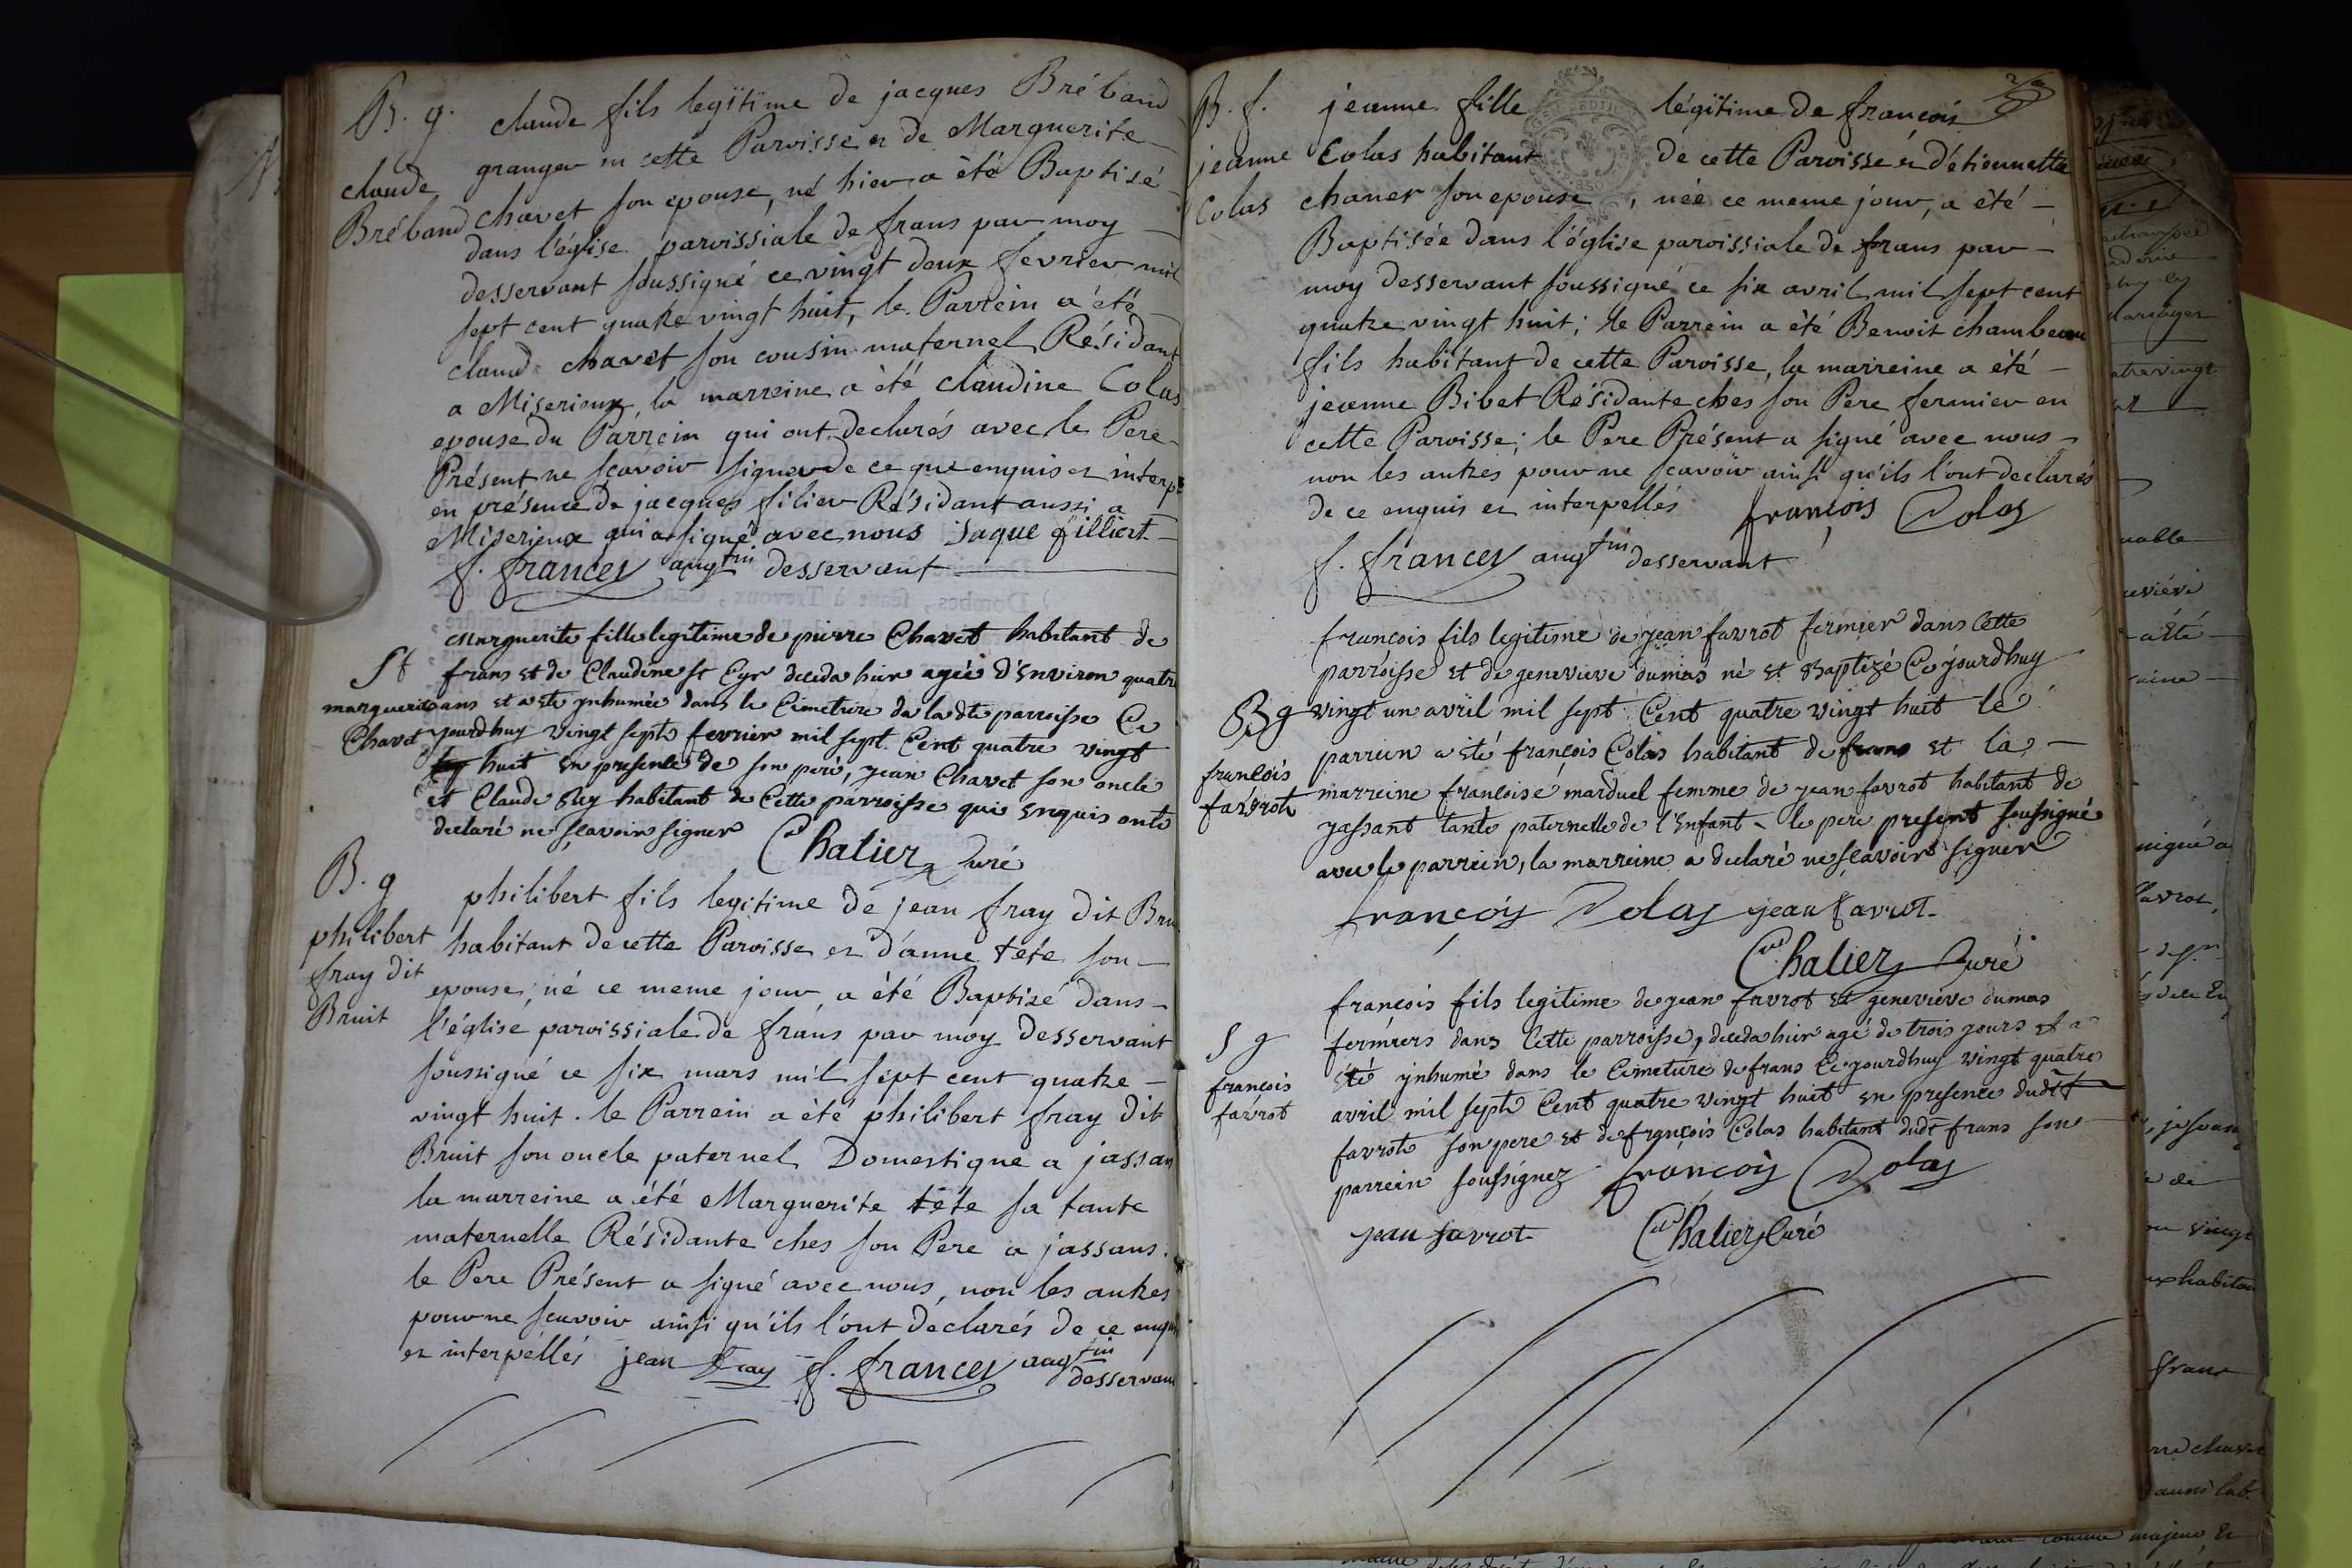 B. g.
claude
Bréband
claude fils legitime de jacques Bréband
granger en cette Paroisse et de Marguerite
chavet son epouse, né hier a été Baptisé
dans l'église paroissiale de frans par moy
desservant soussigné ce vingt deux fevrier mil
sept cent quatre vingt huit, le Parrein a été
claude chavet son cousin maternel Résidant
a Miserieux, la marreine a été claudine Colas
epouse du Parrein qui ont declarés avec le Pere
Présent ne scavoir signer de ce que enquis et interp
en présence de jacques filier Résidant aussi a
Miserieux qui a signé avec nous jaque filliert
f. francey augtin desservant
St
marguerite
Chavet
Marguerite fille legitime de pierre Chavet habitant de
frans et de Claudine st Cyr deceda hier agée d'environ quatre
ans et a ete ynhumée dans le Cimetiere de ladte parroisse Ce
jourdhuy vingt sept fevrier mil sept Cent quatre vingt
huit en presence de son pere, jean Chavet son oncle
et Claude habitant de Cette parroisse qui enquis ont
declaré ne scavoir signer Chalier Curé
B. g
philibert
fray dit
Bruit
philibert fils legitime de jean fray dit Bru
habitant de cette Paroisse et d'anne tête son
epouse, né ce meme jour, a été Baptisé dans
l'église paroissiale de frans par moy desservant
soussigné ce six mars mil sept cent quatre
vingt huit. le Parrein a été philibert fray dit
Bruit son oncle paternel Domestique a jassan
la marreine a été Marguerite tête sa tante
maternelle Résidante ches son Pere a jassans.
le Pere Présent a signé avec nous, non les autres
pour ne scavoir ainsi qu'ils l'ont déclarés de ce enqu
et interpéllés jean fray f. francey augtin
desservant
B. f.
jeanne
Colas
jeanne fille légitime de françois
Colas habitant de cette Paroisse et d'étiennette
chaner son epouse, née ce meme jour, a été
Baptisée dans l'église paroissiale de frans par
moy desservant soussigné ce six avril mil sept cent
quatre vingt huit; le Parrein a été Benoit chambeau
fils habitant de cette Paroisse, la marreine a été
jeanne Bibet Résidante ches son Pere fermier en
cette Paroisse; le Pere Présent a signé avec nous
non les autres pour ne scavoir ainsi qu'ils l'ont declarés
de ce enquis et interpellés françois Colas
f. francey augtin desservant
Bg
françois
favrot
francois fils legitime de jean favrot fermier dans Cette
parroisse et de genevieve dumas né et Baptizé Ce jourdhuy
vingt un avril mil sept Cent quatre vingt huit le
parrein a été françois Colas habitant de frans et la
marreine francoise marduel femme de jean favrot habitant de
jassant tante paternelle de l'enfant le pere present soussigné
avec le parrein, la marreine a declaré ne scavoir signer
françois Colas jean favrot
Chalier Curé
S g
francois
favrot
francois fils legitime de jean favrot et genevieve dumas
fermiers dans Cette parroisse, deceda hier agé de trois jours et a
été ynhumé dans le Cimetiere de frans Ce jourdhuy vingt quatre
avril mil sept Cent quatre vingt huit en presence dudt
favrot son pere et de françois Colas habitant dudt frans son
parrein soussignez françois Colas
jean favrot Chalier Curé